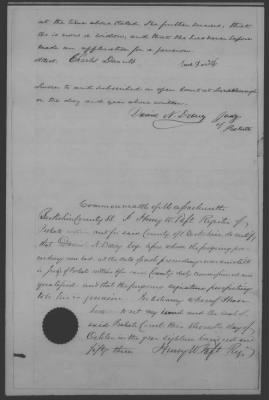 at the time above stated. She further swears, that
she is now a widow, and that she has never before
made an application for a pension.
Attest, Charles
Sworn to and subscribed in open Court at
on the day and year above written.
Daniel N. Dewey Judge
of Probate
Commonwealth of Massachusetts
Berkshire County SS. I Henry W. Taft Register of
Probate within and for said County of Berkshire do certify
that Daniel N. Dewey Esq. before whom the foregoing
was had, at the date of said proceedings was
Judge of Probate within & for said County duly commissioned and
qualified and that the foregoing signature purporting
to be his is genuine. In testimony whereof I have
hereunto set my hand and the seal of
said Probate Court this day of
October in the year eighteen hundred and
fifty three Henry W. Taft Reg.